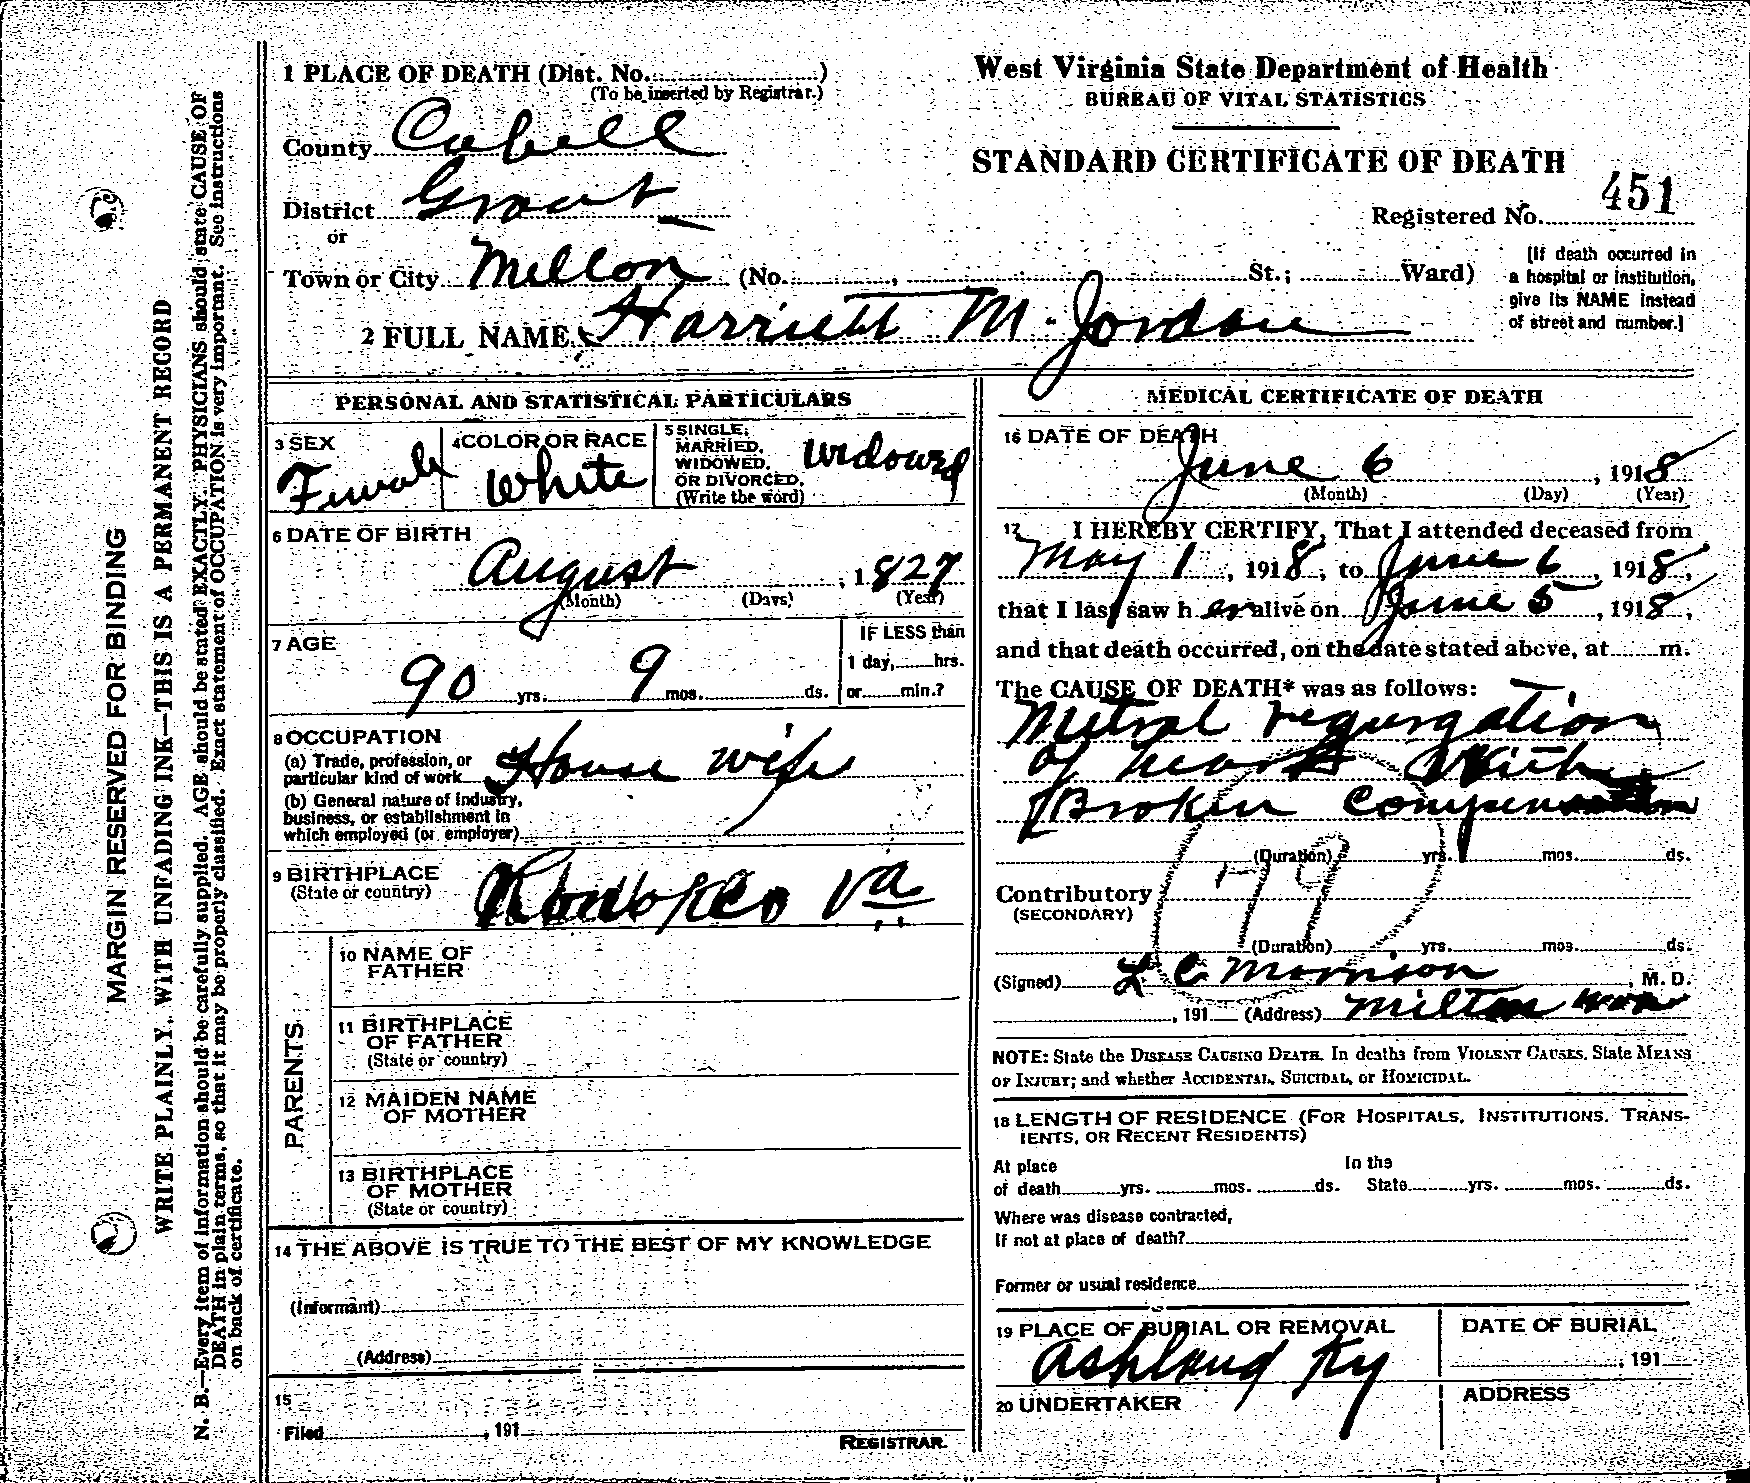 MARGIN RESERVED FOR BINDING
WRITE PLAINLY, WITH UNFADING INK—THIS IS A PERMANENT RECORD
N. B.—Every item of information should be carefully supplied. AGE should be stated EXACTLY. PHYSICIANS should state CAUSE OF
DEATH in plain terms, so that it may be properly classified. Exact statement of OCCUPATION is very important. See instructions
on back of certificate.
1 PLACE OF DEATH (Dist. No. )
(To be inserted by Registrar.)
County Cabell
District Grant
or
Town or City (No. , St.; Ward)
West Virginia State Department of Health
BUREAU OF VITAL STATISTICS
STANDARD CERTIFICATE OF DEATH
Registered No. 451
[If death occurred in
a hospital or institution,
give its NAME instead
of street and number.]
2 FULL NAME Harriett M. Jordan
PERSONAL AND STATISTICAL PARTICULARS
3 SEX
Female
4 COLOR OR RACE
White
5 SINGLE,
MARRIED,
WIDOWED,
OR DIVORCED,
(Write the word)
Widowed
6 DATE OF BIRTH
August , 1827
(Month) (Days) (Year)
7 AGE
90 yrs. 9 mos. ds.
IF LESS than
1 day, hrs.
or min.?
8 OCCUPATION
(a) Trade, profession, or
particular kind of work House wife
(b) General nature of industry,
business, or establishment in
which employed (or employer)
9 BIRTHPLACE
(State or country) Va
PARENTS
10 NAME OF
FATHER
11 BIRTHPLACE
OF FATHER
(State or country)
12 MAIDEN NAME
OF MOTHER
13 BIRTHPLACE
OF MOTHER
(State or country)
14 THE ABOVE IS TRUE TO THE BEST OF MY KNOWLEDGE
(Informant)
(Address)
15
Filed , 191
REGISTRAR.
MEDICAL CERTIFICATE OF DEATH
16 DATE OF DEATH
June 6 , 1918
(Month) (Day) (Year)
17 I HEREBY CERTIFY, That I attended deceased from
May 1 , 1918, to June 6 , 1918,
that I last saw her alive on June 5 , 1918,
and that death occurred, on the date stated above, at m.
The CAUSE OF DEATH* was as follows:
Mitral regurgation
of heart with
Broken Compensation
(Duration) yrs. mos. ds.
79
Contributory
(SECONDARY)
(Duration) yrs. mos. ds.
(Signed) L C Morrison , M. D.
, 191 (Address) Milton
NOTE: State the DISEASE CAUSING DEATH. In deaths from VIOLENT CAUSES, State MEANS
OF INJURY; and whether ACCIDENTAL, SUICIDAL, or HOMICIDAL.
18 LENGTH OF RESIDENCE (FOR HOSPITALS, INSTITUTIONS, TRANS-
IENTS, OR RECENT RESIDENTS)
At place In the
of death yrs. mos. ds. State yrs. mos. ds.
Where was disease contracted,
If not at place of death?
Former or usual residence
19 PLACE OF BURIAL OR REMOVAL
Ashland Ky
DATE OF BURIAL
, 191
20 UNDERTAKER
ADDRESS